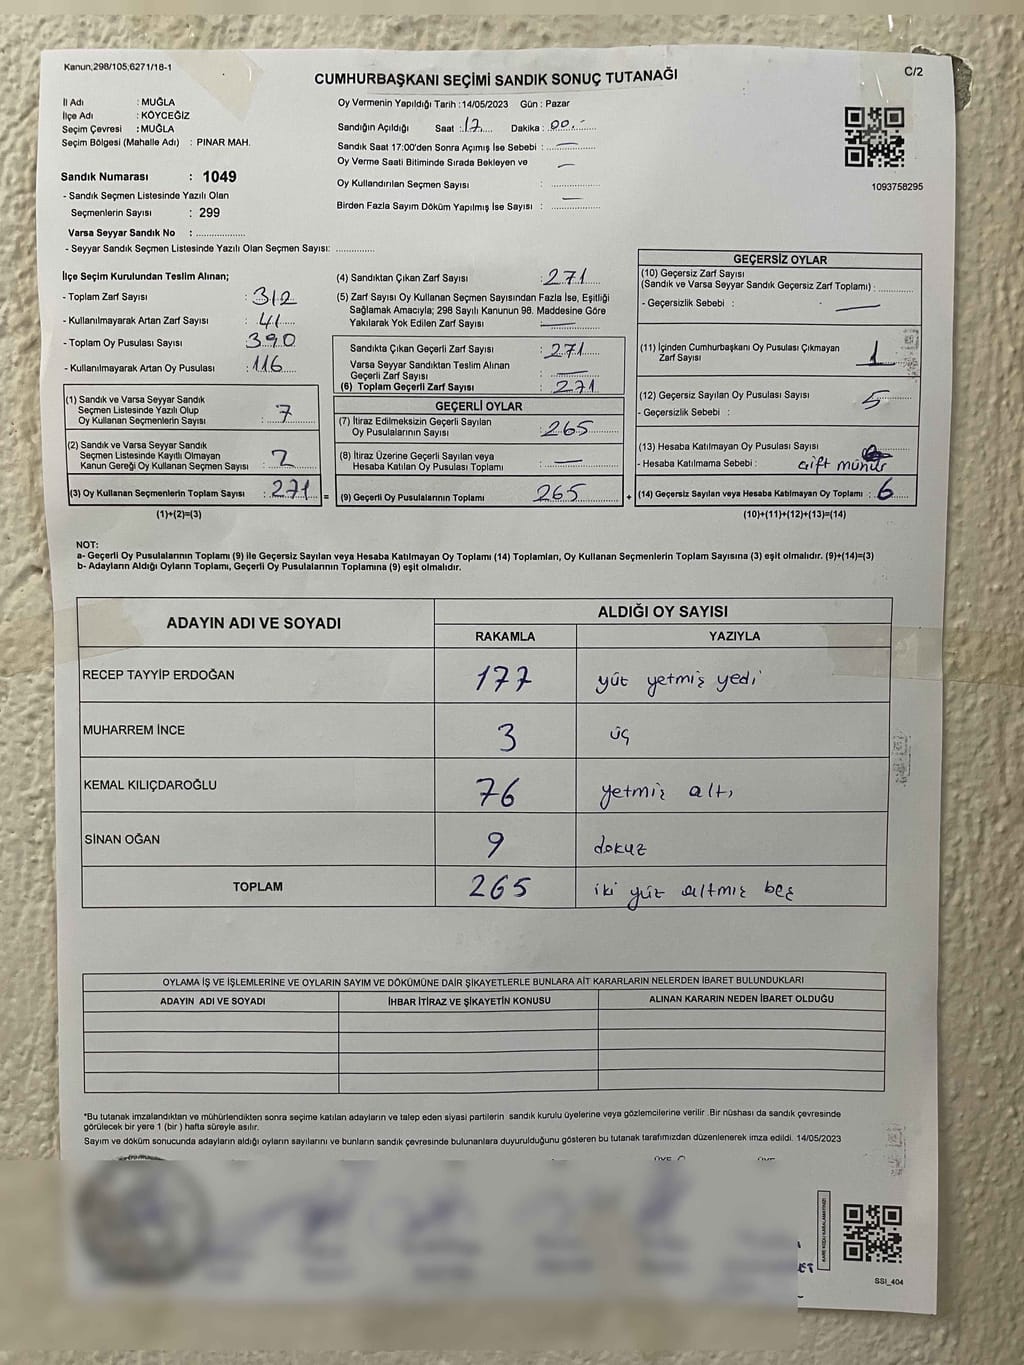 Kanun,298/105,6271/18-1
CUMHURBAŞKANI SEÇİMİ SANDIK SONUÇ TUTANAĞI
C/2
İl Adı : MUĞLA
İlçe Adı : KÖYCEĞİZ
Seçim Çevresi : MUĞLA
Seçim Bölgesi (Mahalle Adı) : PINAR MAH.
Sandık Numarası : 1049
- Sandık Seçmen Listesinde Yazılı Olan
Seçmenlerin Sayısı : 299
Varsa Seyyar Sandık No : ..................
- Seyyar Sandık Seçmen Listesinde Yazılı Olan Seçmen Sayısı: ..............
Oy Vermenin Yapıldığı Tarih : 14/05/2023 Gün : Pazar
Sandığın Açıldığı Saat : 17 Dakika : 00.-
Sandık Saat 17:00'den Sonra Açımış İse Sebebi : —
Oy Verme Saati Bitiminde Sırada Bekleyen ve —
Oy Kullandırılan Seçmen Sayısı : ..............
Birden Fazla Sayım Döküm Yapılmış İse Sayısı : —
1093758295
İlçe Seçim Kurulundan Teslim Alınan;
- Toplam Zarf Sayısı : 312
- Kullanılmayarak Artan Zarf Sayısı : 41
- Toplam Oy Pusulası Sayısı : 390
- Kullanılmayarak Artan Oy Pusulası : 116
(1) Sandık ve Varsa Seyyar Sandık
Seçmen Listesinde Yazılı Olup
Oy Kullanan Seçmenlerin Sayısı :
(2) Sandık ve Varsa Seyyar Sandık
Seçmen Listesinde Kayıtlı Olmayan
Kanun Gereği Oy Kullanan Seçmen Sayısı :
(3) Oy Kullanan Seçmenlerin Toplam Sayısı : 271 =
(1)+(2)=(3)
(4) Sandıktan Çıkan Zarf Sayısı : 271
(5) Zarf Sayısı Oy Kullanan Seçmen Sayısından Fazla İse, Eşitliği
Sağlamak Amacıyla; 298 Sayılı Kanunun 98. Maddesine Göre
Yakılarak Yok Edilen Zarf Sayısı : —
Sandıkta Çıkan Geçerli Zarf Sayısı : 271
Varsa Seyyar Sandıktan Teslim Alınan
Geçerli Zarf Sayısı : —
(6) Toplam Geçerli Zarf Sayısı : 271
GEÇERLİ OYLAR
(7) İtiraz Edilmeksizin Geçerli Sayılan
Oy Pusulalarının Sayısı : 265
(8) İtiraz Üzerine Geçerli Sayılan veya
Hesaba Katılan Oy Pusulası Toplamı : —
(9) Geçerli Oy Pusulalarının Toplamı 265 +
GEÇERSİZ OYLAR
(10) Geçersiz Zarf Sayısı
(Sandık ve Varsa Seyyar Sandık Geçersiz Zarf Toplamı) : ..........
- Geçersizlik Sebebi : —
(11) İçinden Cumhurbaşkanı Oy Pusulası Çıkmayan
Zarf Sayısı 1
(12) Geçersiz Sayılan Oy Pusulası Sayısı : 5
- Geçersizlik Sebebi :
(13) Hesaba Katılmayan Oy Pusulası Sayısı :
- Hesaba Katılmama Sebebi : çift mühür
(14) Geçersiz Sayılan veya Hesaba Katılmayan Oy Toplamı : 6
(10)+(11)+(12)+(13)=(14)
NOT:
a- Geçerli Oy Pusulalarının Toplamı (9) ile Geçersiz Sayılan veya Hesaba Katılmayan Oy Toplamı (14) Toplamları, Oy Kullanan Seçmenlerin Toplam Sayısına (3) eşit olmalıdır. (9)+(14)=(3)
b- Adayların Aldığı Oyların Toplamı, Geçerli Oy Pusulalarının Toplamına (9) eşit olmalıdır.
ADAYIN ADI VE SOYADI ALDIĞI OY SAYISI
RAKAMLA YAZIYLA
RECEP TAYYİP ERDOĞAN 177 yüz yetmiş yedi
MUHARREM İNCE 3 üç
KEMAL KILIÇDAROĞLU 76 yetmiş altı
SİNAN OĞAN 9 dokuz
TOPLAM 265 iki yüz altmış beş
OYLAMA İŞ VE İŞLEMLERİNE VE OYLARIN SAYIM VE DÖKÜMÜNE DAİR ŞİKAYETLERLE BUNLARA AİT KARARLARIN NELERDEN İBARET BULUNDUKLARI
ADAYIN ADI VE SOYADI İHBAR İTİRAZ VE ŞİKAYETİN KONUSU ALINAN KARARIN NEDEN İBARET OLDUĞU
*Bu tutanak imzalandıktan ve mühürlendikten sonra seçime katılan adayların ve talep eden siyasi partilerin sandık kurulu üyelerine veya gözlemcilerine verilir .Bir nüshası da sandık çevresinde
görülecek bir yere 1 (bir ) hafta süreyle asılır.
Sayım ve döküm sonucunda adayların aldığı oyların sayılarını ve bunların sandık çevresinde bulunanlara duyurulduğunu gösteren bu tutanak tarafımızdan düzenlenerek imza edildi. 14/05/2023
SSI_404